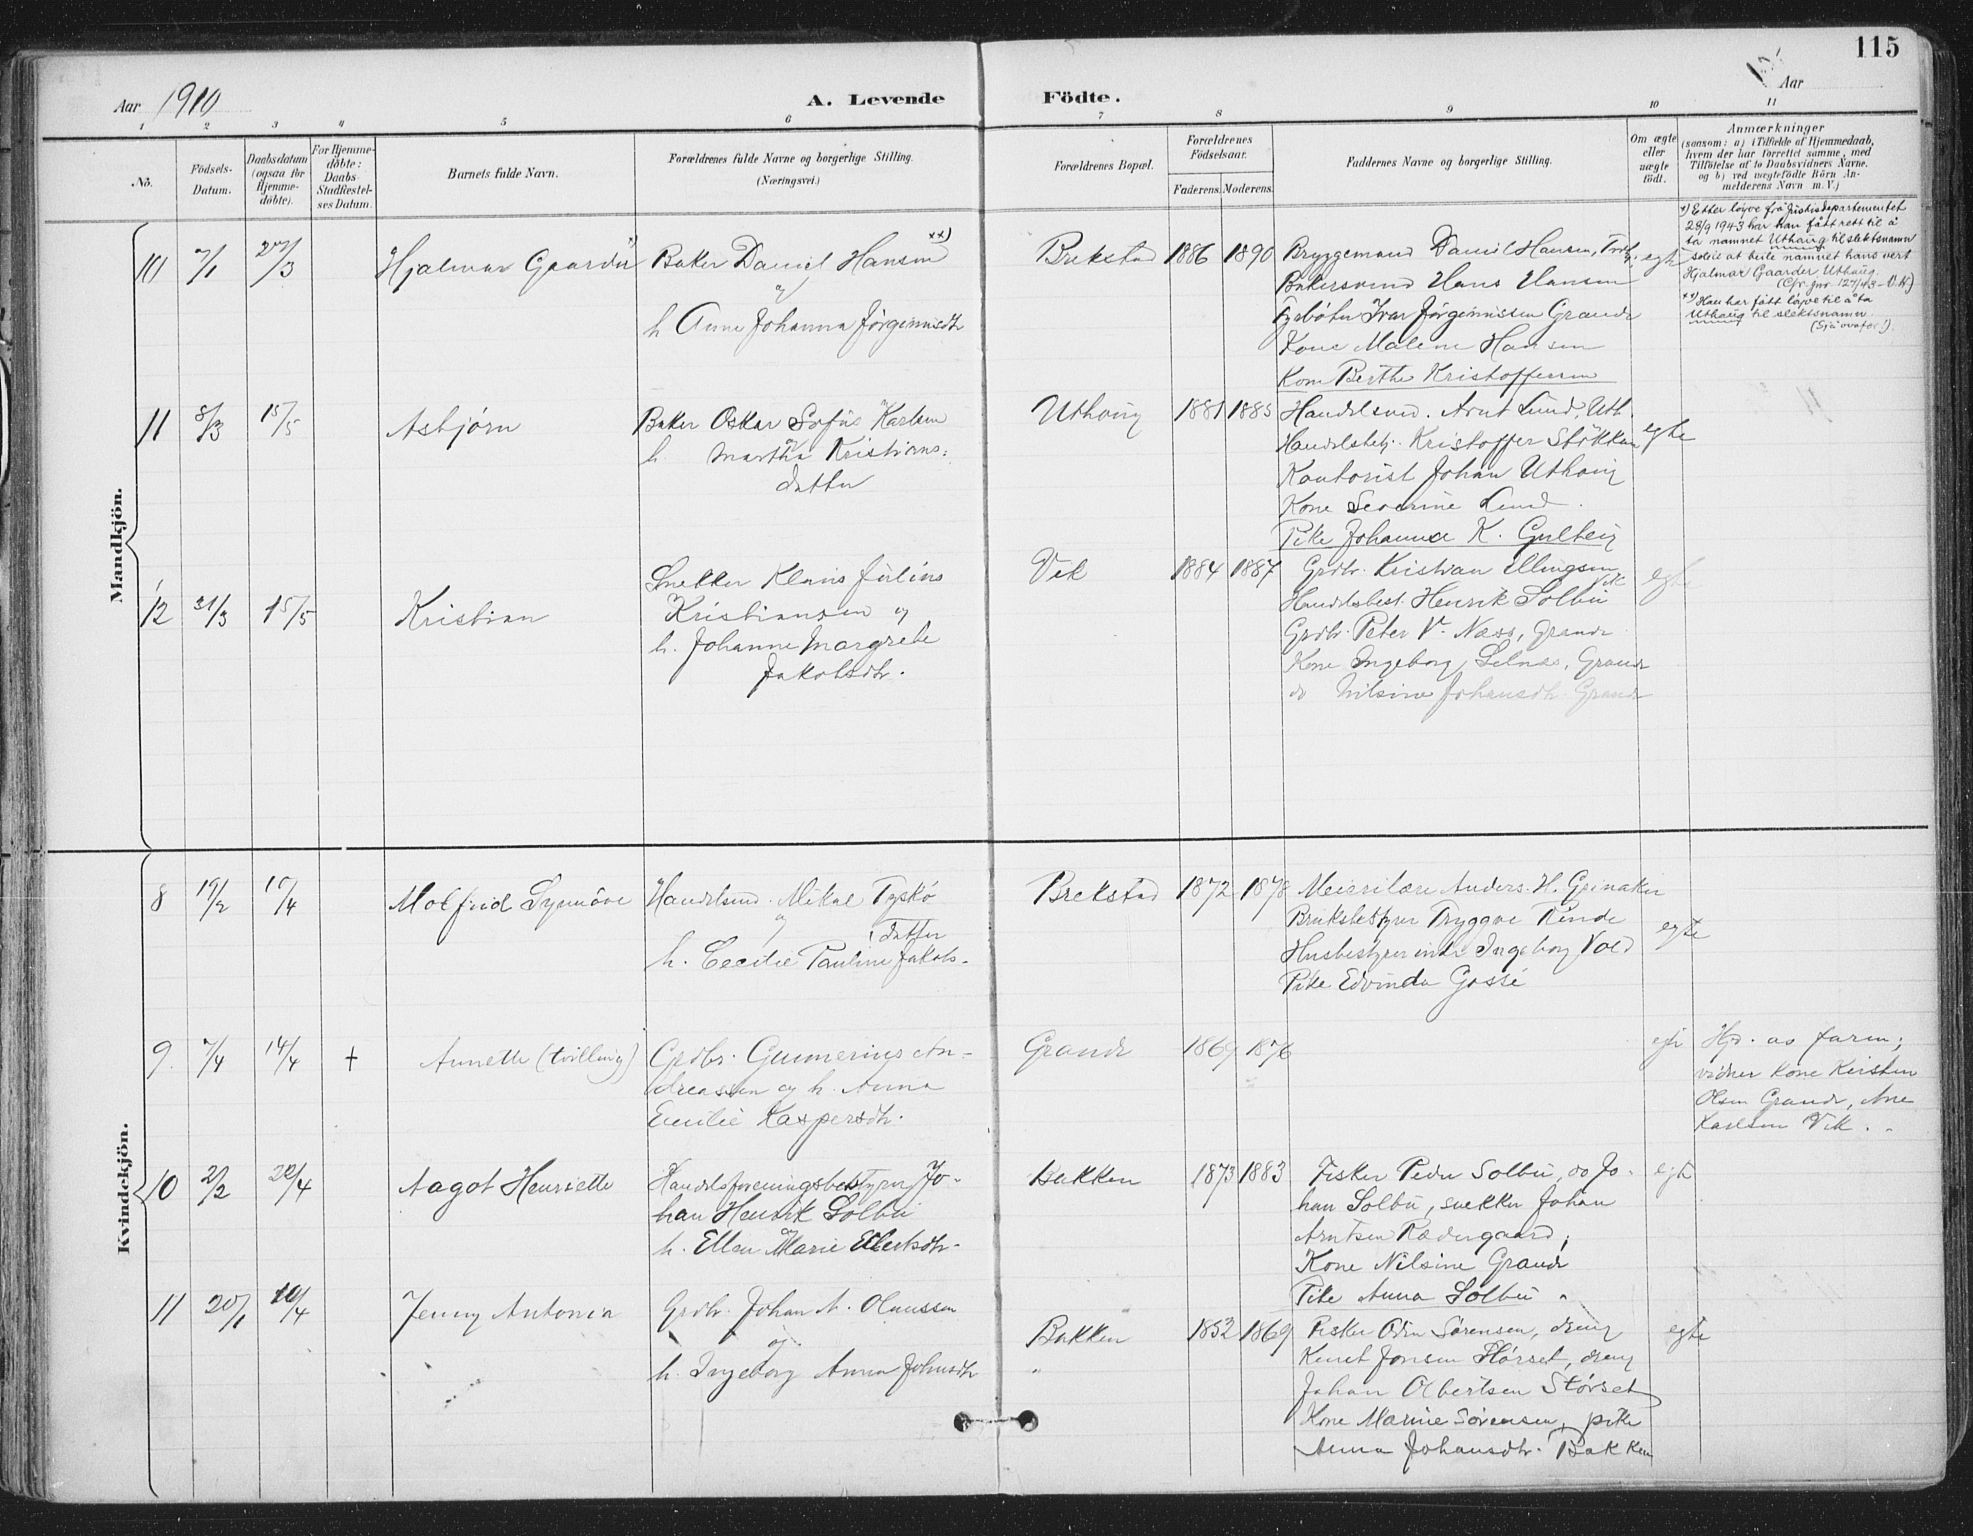 115
Aar 1910
A. Levende
Födte.
Aar
1 2 3 4 5 6 7 8 9 10 11
No.
Födsels-
Datum.
Daabsdatum
(ogsaa for
Hjemme-
döbte).
For Hjemme-
döbte:
Daabs-
Stadfæstel-
ses Datum.
Barnets fulde Navn.
Forældrenes fulde Navne og borgerlige Stilling.
(Næringsvei.)
Forældrenes Bopæl.
Forældrenes
Födselsaar.
Faderens. Moderens.
Faddernes Navne og borgerlige Stilling.
Om ægte
eller
uægte
födt.
Anmærkninger
(saasom: a) i Tilfælde af Hjemmedaab,
hvem der har forrettet samme, med
Tilföielse af to Daabsvidners Navne.
og b) ved uægtefödte Börn An-
melderens Navn m. V.)
Mandkjön.
10 7/1 27/3 Hjalmar Gaarder
Baker Daniel Hansen xx)
og
h. Anne Johanna Jørgensdtr
Brekstad 1886 1890
Bryggemand Daniel Hansen,
Bakersvend Hans Hansen
Ivar Jørgenssen Grande
Kone Malene Hansen
Kone Berthe Kristoffersen
egte
x) Etter løyve frå Justisdepartementet
28/9 1943 har han fått rett til å
ta namnet Uthaug til slektsnamn
soleis at heile namnet hans vert
Hjalmar Gaarder Uthaug.
(Cfr. jnr 127/43 - )
xx) Han har fått løyve til å ta
Uthaug til slektsnamn
(Sjå ovafor!).
11 8/3 15/5 Asbjørn
Baker Oskar Sofus Karlsen
og
h. Martha Kristians-
datter
Uthaug 1881 1885
Handelsmd. Arnt Lund, Uth.
Handelsbetj. Kristoffer Stökkan
Kontorist Johan Uthaug
Kone Severine Lund
Pike Johanna K. Gulteig
egte
12 31/3 15/5 Kristian
Snekker Klaus Julius
Kristiansen og
h. Johanne Margrete
Jakobsdtr.
Vik 1884 1887
Grdbr. Kristian Ellingsen,
Handelsbest. Henrik Solbu
Grdbr. Peter V. Næss, Grande
Kone Ingeborg Selnes, Grande
do Nilsine Johansdtr. Grande
egte
Kvindekjön.
8 19/2 /4 Molfrid Synnöve
Handelsmd. Mikal Tyskö
og
datter
h. Cecilie Pauline Jakobs-
Brekstad 1872 1878
Meierilærer Anders H. Grinaker
Bruksbestyrer Tryggve Rinde
Husbestyrerinde Ingeborg Vold
Pike Edvinda Gossé
egte
9. 7/4 14/4 † Annette (tvilling)
Grdbr. Gunnerius An-
dreassen og h. Anna
Emilie Kaspersdtr.
Grande 1869 1876
egte
Hjd. av farm;
vidner Kone Kirsten
Olsen Grande, Ane
Karlsen Vik.
10 2/2 /4 Aagot Henriette
Handelsforeningsbestyrer Jo-
han Henrik Solbu
og
h. Ellen Marie Elertsdtr.
Bakken 1873 1883
Fisker Peder Solbu, do Jo-
han Solbu, snekker Johan
Arntsen Rædergaard,
Kone Nilsine Grande
Pike Anna Solbu
egte
11 20/1 /4 Jenny Antonia
Grdbr. Johan A. Olaussen
og
h. Ingeborg Anna Johnsdtr
Bakken 1852 1869
"
Fisker Odin Sørensen, dreng
Kenet Jonsen Størset, dreng
Johan Olbertsen Størset
Kone Marine Sørensen, pike
Anna Johansdtr. Bakken
egte